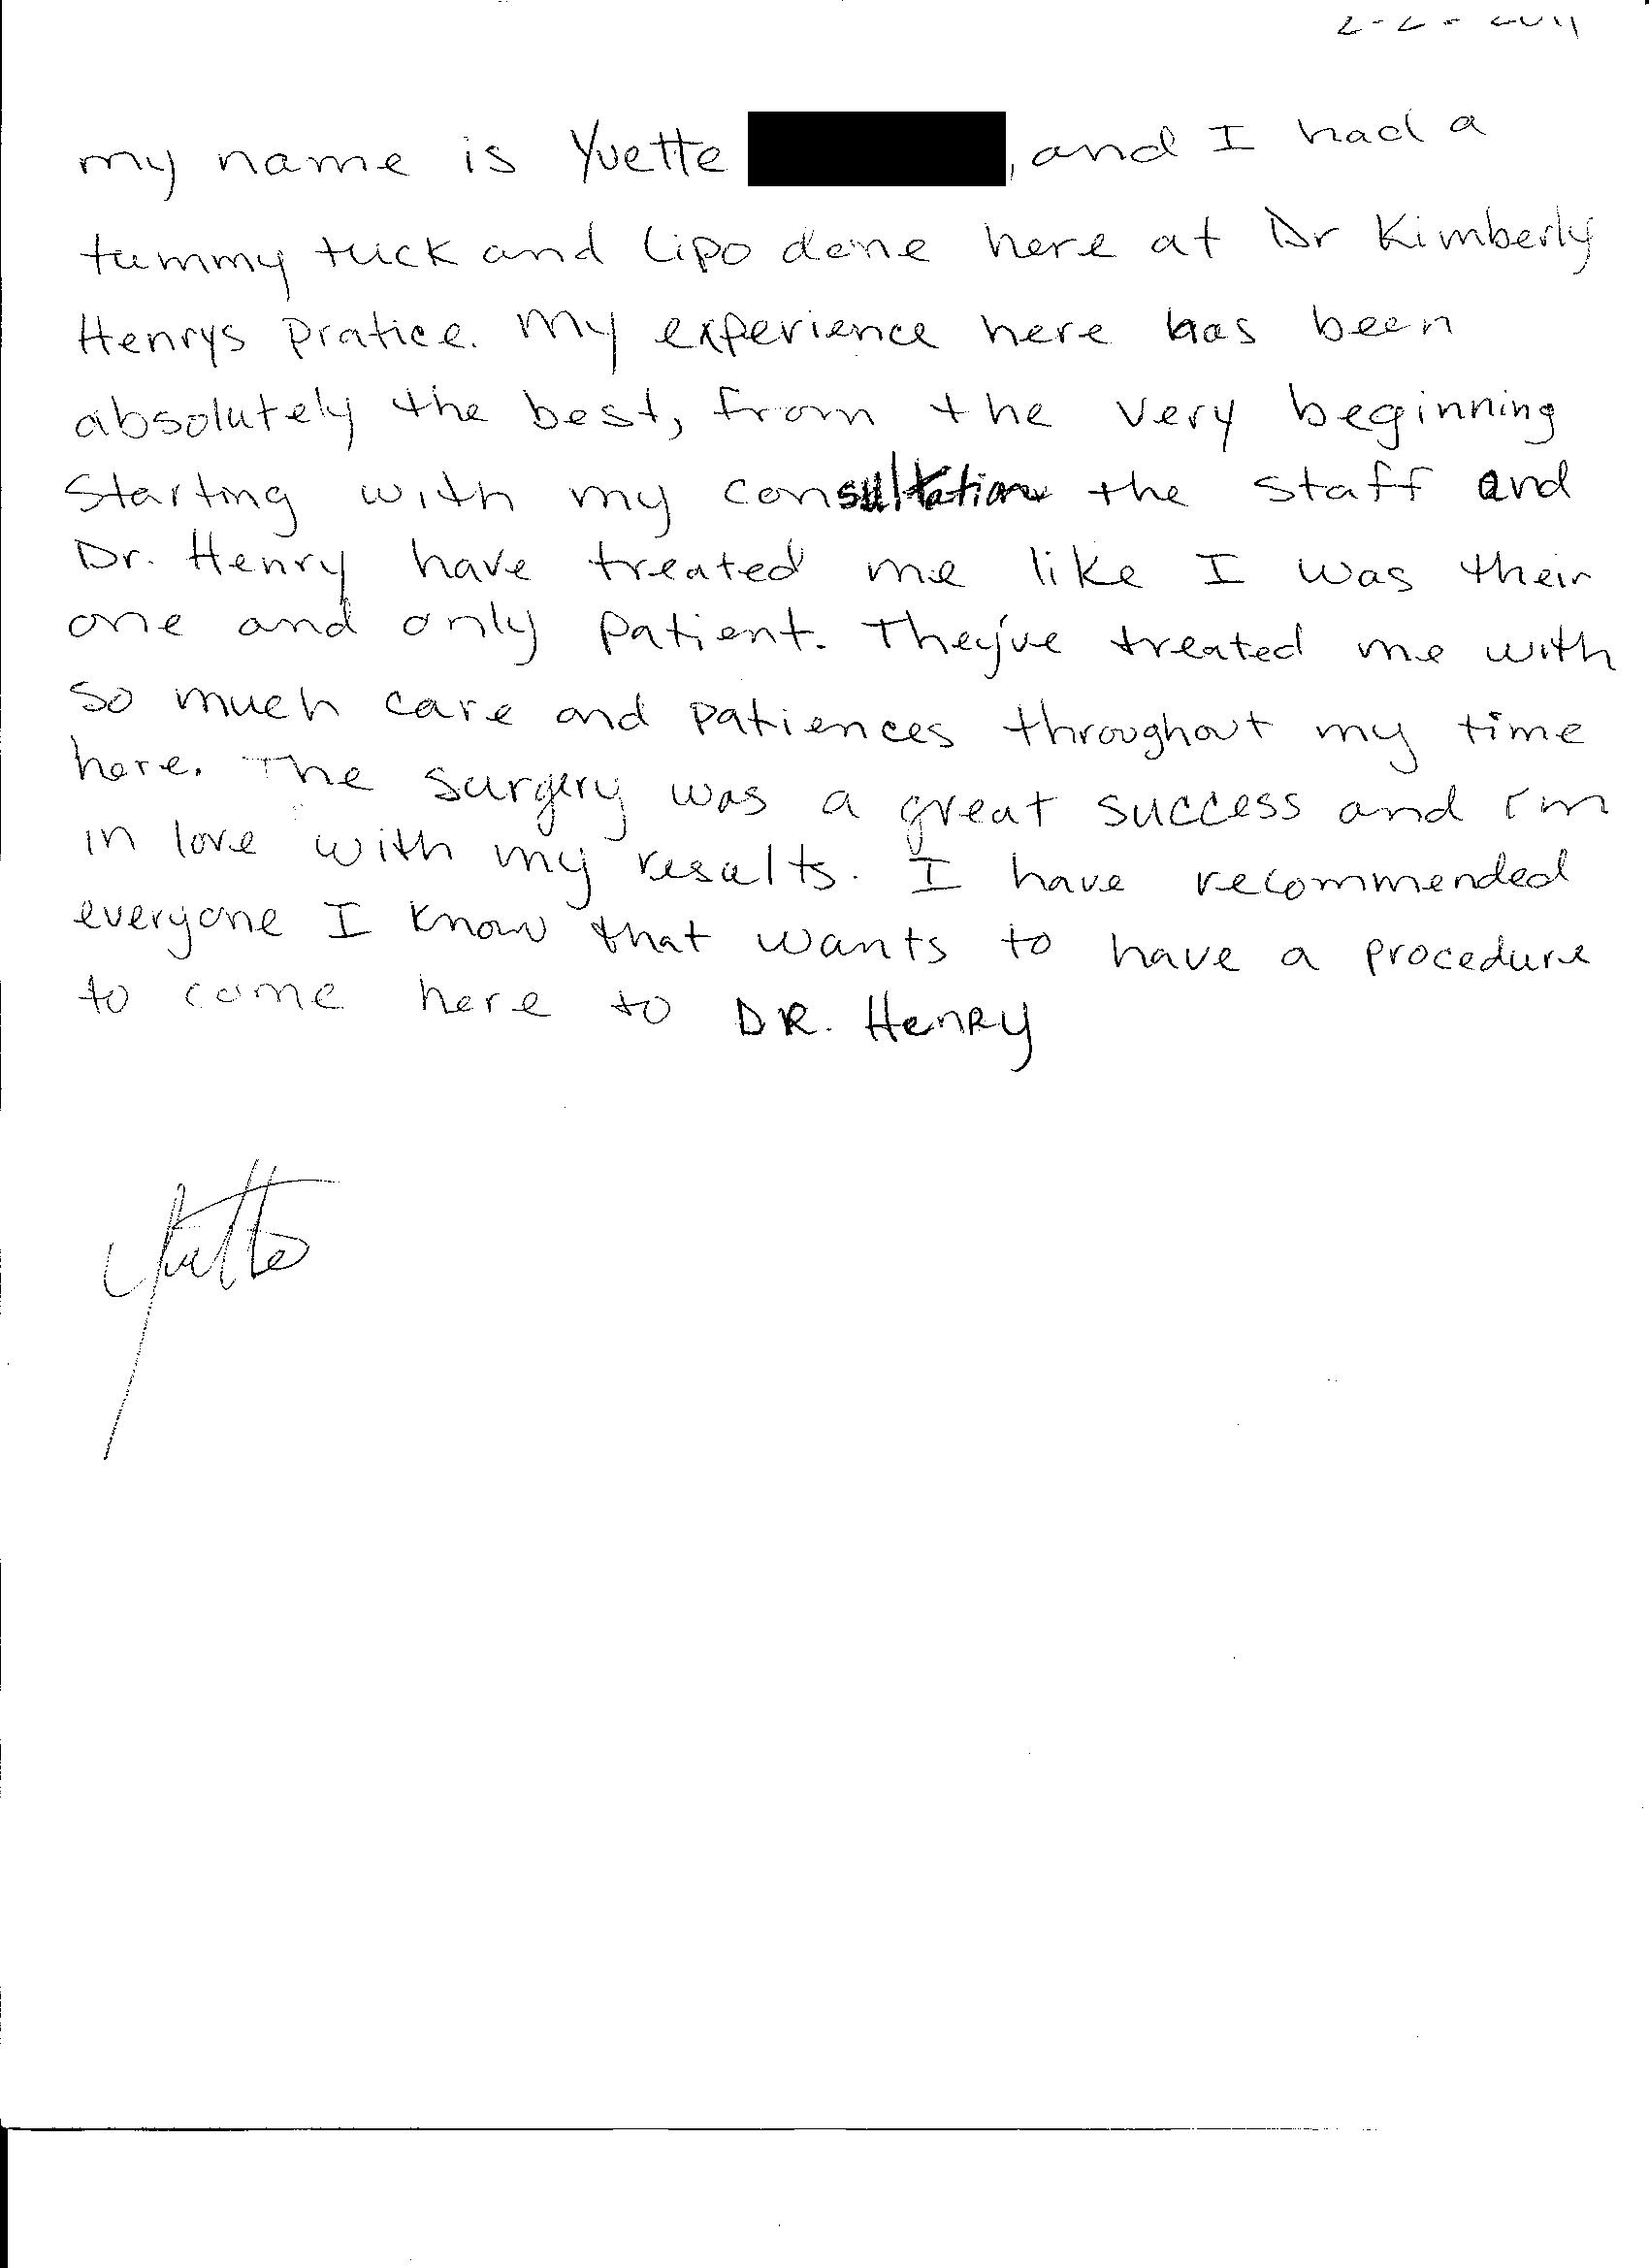 my name is Yvette , and I had a
tummy tuck and Lipo done here at Dr Kimberly
Henrys pratice. My experience here has been
absolutely the best, from the very beginning
Starting with my consultation the staff and
Dr. Henry have treated me like I was their
one and only patient. They've treated me with
so much care and patiences throughout my time
here. The surgery was a great success and I'm
in love with my results. I have recommended
everyone I know that wants to have a procedure
to come here to DR. Henry
Yvette